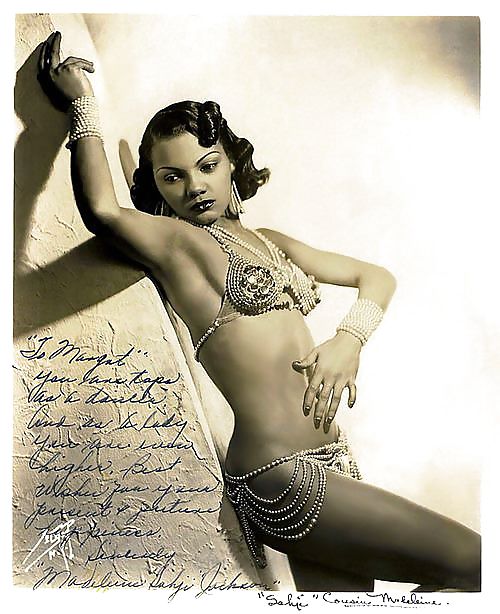 "To Margot"
you are tops
as a dancer
And as a lady
you are even
higher. Best
wishes for your
present & future
happiness.
Sincerely
"Madeline Sahji Jackson"
"Sahji" Cousin Madeleine.